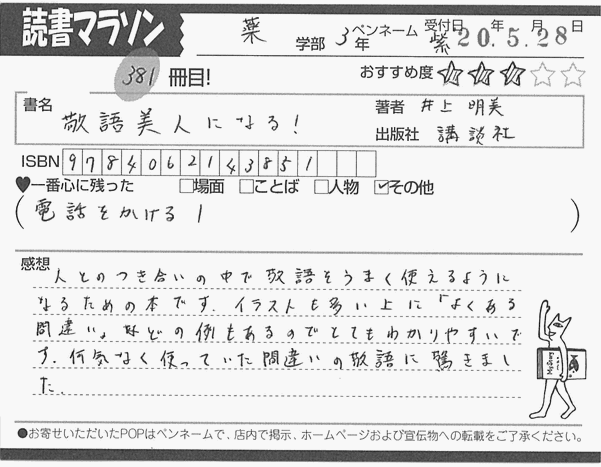 読書マラソン 薬 学部 3年 ペンネーム 紫 受付日 20.5.28 年 月 日
381 冊目! おすすめ度 ★★★☆☆
書名 敬語美人になる! 著者 井上 明美
出版社 講談社
ISBN 9784062143851
♥一番心に残った □場面 □ことば □人物 ☑その他
(電話をかける 1)
感想
人とのつき合いの中で敬語をうまく使えるように
なるための本です。イラストも多い上に「よくある
間違い」などの例もあるのでとてもわかりやすいで
す。何気なく使っていた間違いの敬語に驚きまし
た。
●お寄せいただいたPOPはペンネームで、店内で掲示、ホームページおよび宣伝物への転載をご了承ください。